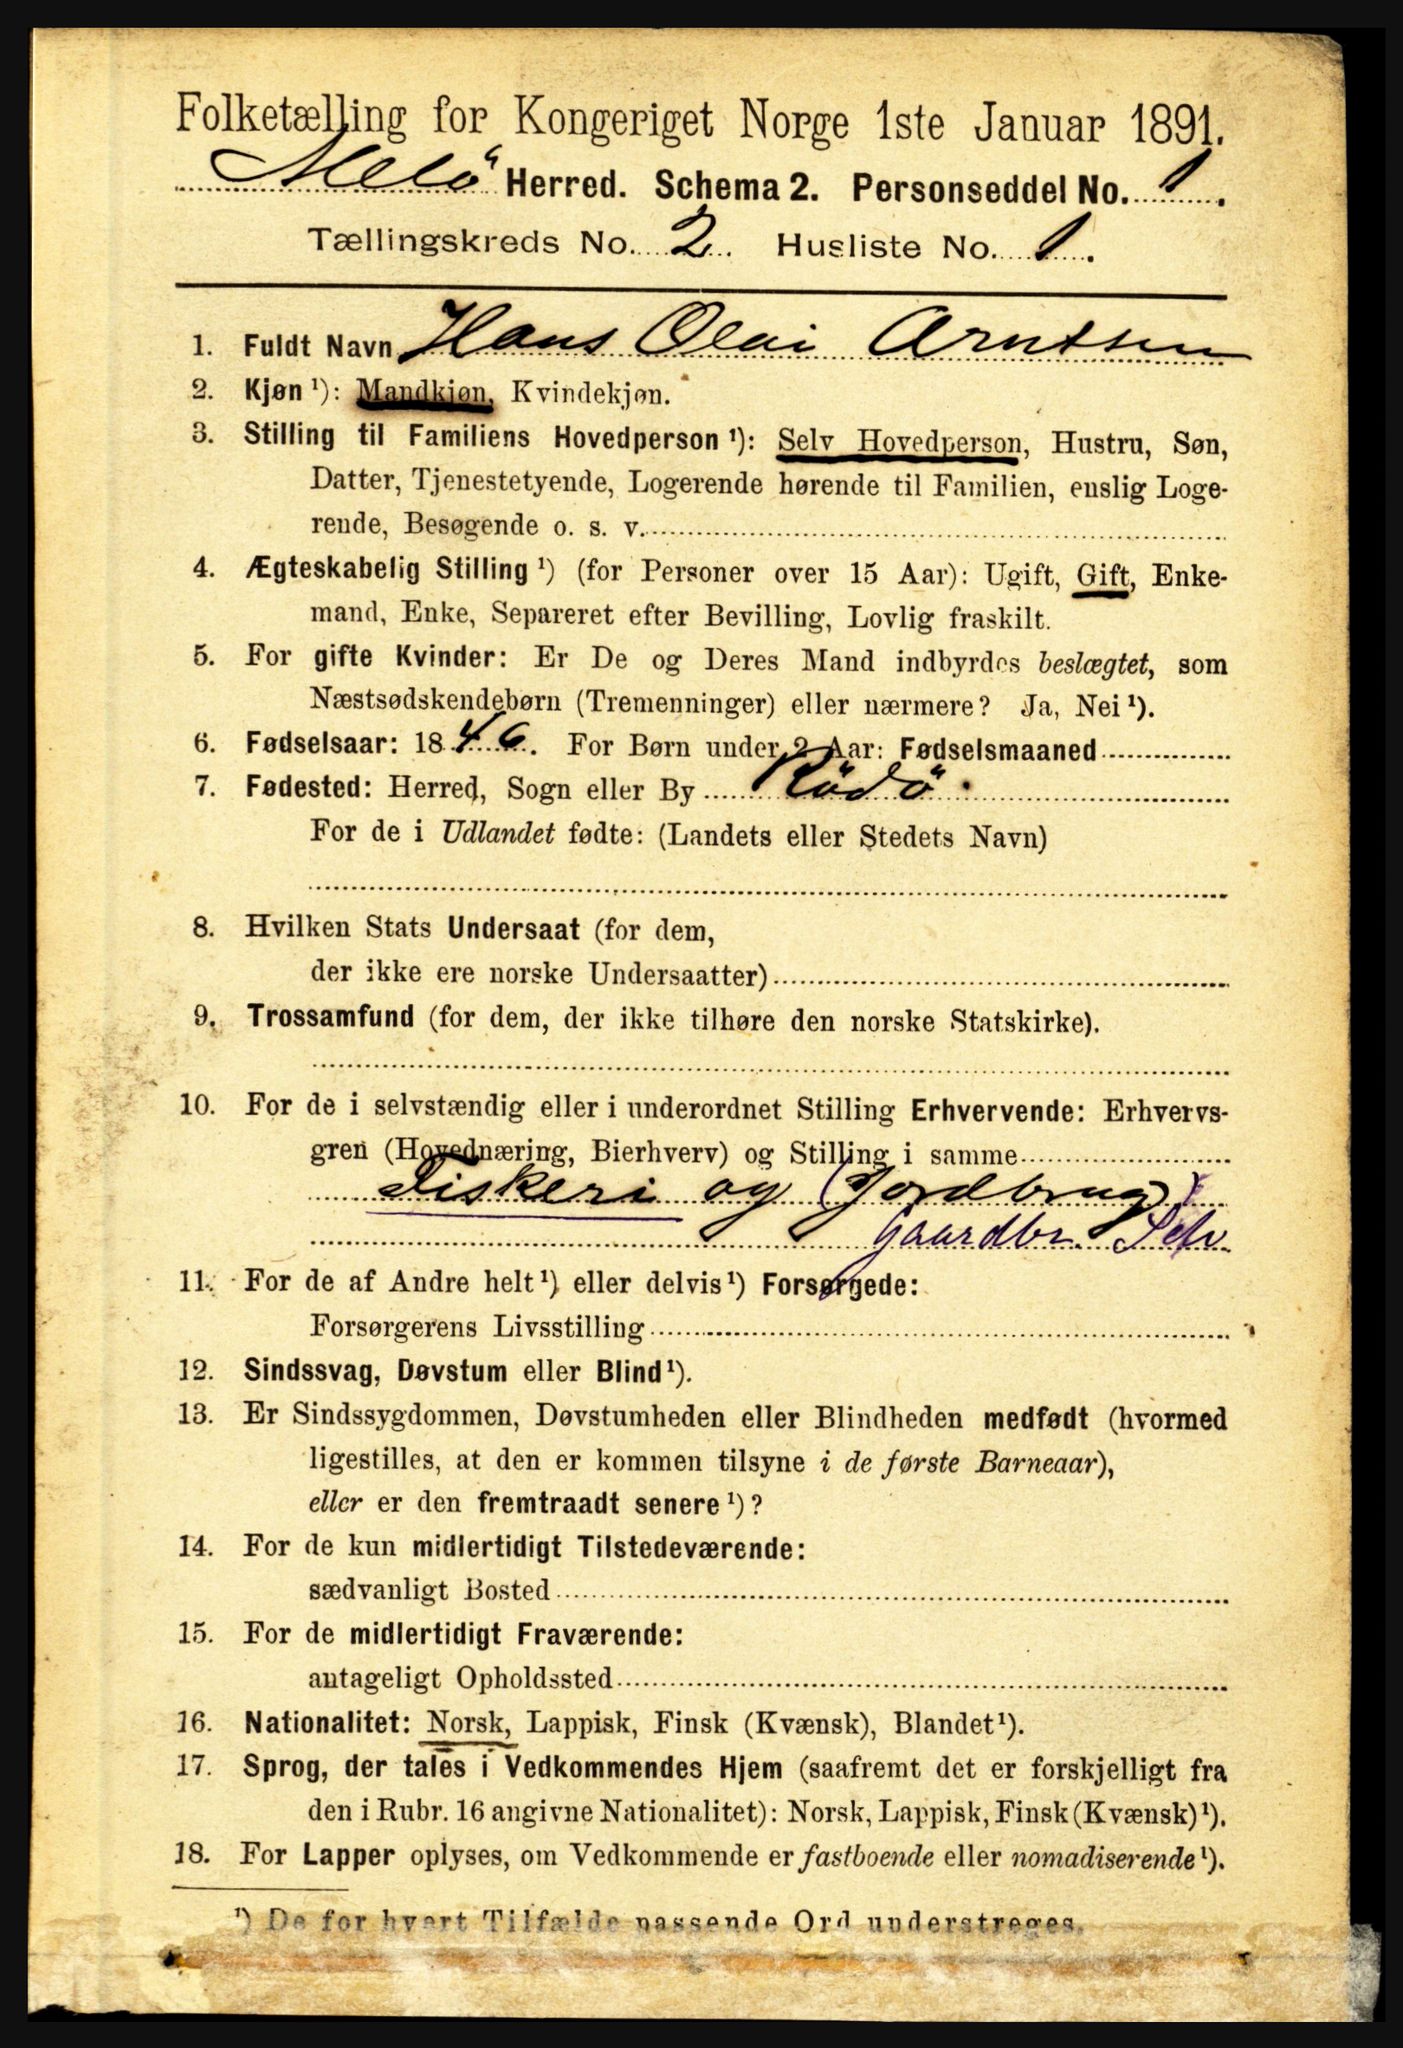 Folketælling for Kongeriget Norge 1ste Januar 1891.
Melö Herred. Schema 2. Personseddel No. 1.
Tællingskreds No. 2. Husliste No. 1.
1. Fuldt Navn Hans Olai Arntsen
2. Kjøn ¹): Mandkjøn, Kvindekjøn.
3. Stilling til Familiens Hovedperson ¹): Selv Hovedperson, Hustru, Søn,
Datter, Tjenestetyende, Logerende hørende til Familien, enslig Loge-
rende, Besøgende o. s. v.
4. Ægteskabelig Stilling ¹) (for Personer over 15 Aar): Ugift, Gift, Enke-
mand, Enke, Separeret efter Bevilling, Lovlig fraskilt.
5. For gifte Kvinder: Er De og Deres Mand indbyrdes beslægtet, som
Næstsødskendebørn (Tremenninger) eller nærmere? Ja, Nei ¹).
6. Fødselsaar: 1846. For Børn under 2 Aar: Fødselsmaaned
7. Fødested: Herred, Sogn eller By Rödö.
For de i Udlandet fødte: (Landets eller Stedets Navn)
8. Hvilken Stats Undersaat (for dem,
der ikke ere norske Undersaatter)
9. Trossamfund (for dem, der ikke tilhøre den norske Statskirke).
10. For de i selvstændig eller i underordnet Stilling Erhvervende: Erhvervs-
gren (Hovednæring, Bierhverv) og Stilling i samme
Fiskeri og (Jordbrug)
Gaardbr. Selv
11. For de af Andre helt ¹) eller delvis ¹) Forsørgede:
Forsørgerens Livsstilling
12. Sindssvag, Døvstum eller Blind ¹).
13. Er Sindssygdommen, Døvstumheden eller Blindheden medfødt (hvormed
ligestilles, at den er kommen tilsyne i de første Barneaar),
eller er den fremtraadt senere ¹)?
14. For de kun midlertidigt Tilstedeværende:
sædvanligt Bosted
15. For de midlertidigt Fraværende:
antageligt Opholdssted
16. Nationalitet: Norsk, Lappisk, Finsk (Kvænsk), Blandet ¹).
17. Sprog, der tales i Vedkommendes Hjem (saafremt det er forskjelligt fra
den i Rubr. 16 angivne Nationalitet): Norsk, Lappisk, Finsk (Kvænsk) ¹).
18. For Lapper oplyses, om Vedkommende er fastboende eller nomadiserende ¹).
¹) De for hvert Tilfælde passende Ord understreges.